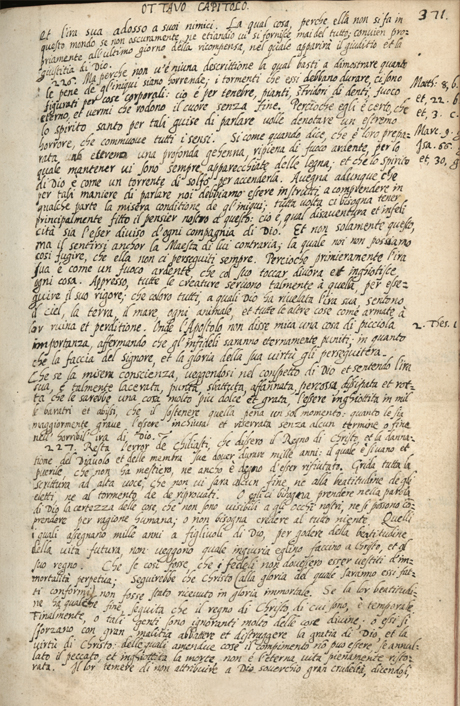 OTTAVO CAPITOLO. 371.
et l'ira sua adosso a suoi nimici. La qual cosa, perche ella non si fa in
questo mondo se non oscuramente, ne etiandio vi si fornisce mai del tutto, convien pro-
priamente all'ultimo giorno della ricompensa, nel quale apparirà il giudicio et la
giustitia di Dio.
Ma perche non v'è niuna descrittione la qual basti a dimostrare quanto
le pene de gl'iniqui siano horrende; i tormenti che essi debbano durare, ci sono
figurati per cose corporali: cio è per tenebre, pianti, stridori di denti, fuoco
eterno, et vermi che rodono il cuore senza fine. Percioche egli è certo, che
lo spirito santo per tali guise di parlare volle denotare un estremo
horrore, che commuove tutti i sensi. Si come quando dice, che è loro prepa-
rata una profonda gehenna, ripiena di fuoco ardente, per lo
quale mantener vi sono sempre apparecchiate delle legna; et che lo spirito
di Dio è come un torrente di solfo per accenderla. Avegna adunque che
per tali maniere di parlare noi debbiamo essere instrutti, a comprendere in
qualche parte la misera conditione de gl'iniqui: tutta volta ci bisogna tener
principalmente fitto il pensier nostro a questo: cio è, qual disaventura et infeli-
cità sia l'esser diviso d'ogni compagnia di Dio. Et non solamente questo,
ma il sentirsi anchor la Maestà di lui contraria; la quale noi non possiamo
cosi fugire, che ella non ci perseguiti sempre. Percioche primieramente l'ira
sua è come un fuoco ardente, che col suo toccar divora et inghiottisce
ogni cosa. Appresso, tutte le creature servono talmente a quella, per esse-
quire il suo rigore; che coloro tutti, a quali Dio ha rivelata l'ira sua, sentono
il ciel, la terra, il mare, ogni animale, et tutte le altre cose come armate à
lor ruina et perditione. Onde l'Apostolo non disse mica una cosa di picciola
importanza, affermando che gl'infideli saranno eternamente puniti; in quanto
che la faccia del Signore, et la gloria della sua virtù gli perseguiterà.
Che se la misera conscienza, veggendosi nel cospetto di Dio et sentendo l'ira
sua, è talmente lacerata, punta, sbattuta, affannata, percossa, dissipata et rot-
ta che le sarebbe una cosa molto piu dolce et grata, l'essere inghiottita in mil-
le baratri et abissi, che il sostenere quella pena un sol momento: quanto le sia
maggiormente grave l'essere inchiusa et riserrata senza alcun termine o fine
nell'horribil ira di Dio.
227. Resta l'error de Chiliasti, che dissero il Regno di Christo, et la danna-
tione del Diavolo et delle membra sue dover durare mille anni: il quale è si vano et
puerile che non ha mestiero, ne anche è degno d'esser rifiutato. Grida tutta la
scrittura ad alta voce, che non vi sarà alcun fine, ne alla beatitudine de gli
eletti, ne al tormento de reprovati. O egli ci bisogna prendere nella parola
di Dio la certezza delle cose, che non sono visibili a gli occhi nostri, ne si possono co[m]-
prendere per ragione humana; o non bisogna credere al tutto niente. Quelli
i quali assegnano mille anni a figliuoli di Dio, per godere della beatitudine
della vita futura, non veggono quale ingiuria eglino faccino a Christo, et al
suo regno. Che se cosi fosse, che i fedeli non dovessero esser vestiti d'im-
mortalità perpetua; seguirebbe che Christo (alla gloria del quale saranno essi fat-
ti conformi) non fosse stato ricevuto in gloria immortale. Se la lor beatitudi-
ne ha qualche fine, seguita che il regno di Christo, di cui sono, è temporale.
Finalmente, o tali genti sono ignoranti molto delle cose divine: o essi si
sforzano con gran malitia abbattere et distruggere la gratia di Dio, et la
virtù di Christo: delle quali amendue cose il compimento nò può essere, se annul-
lato il peccato, et inghiottita la morte, non è l'eterna vita pienamente risto-
rata. Il lor temere di non attribuire a Dio soverchio gran crudeltà, dicendo,
Matth: 8, b.
et, 22. b
et, 3. c.
Marc. 9. g
Isa. 66.
et, 30, g
2. Thes. 1.